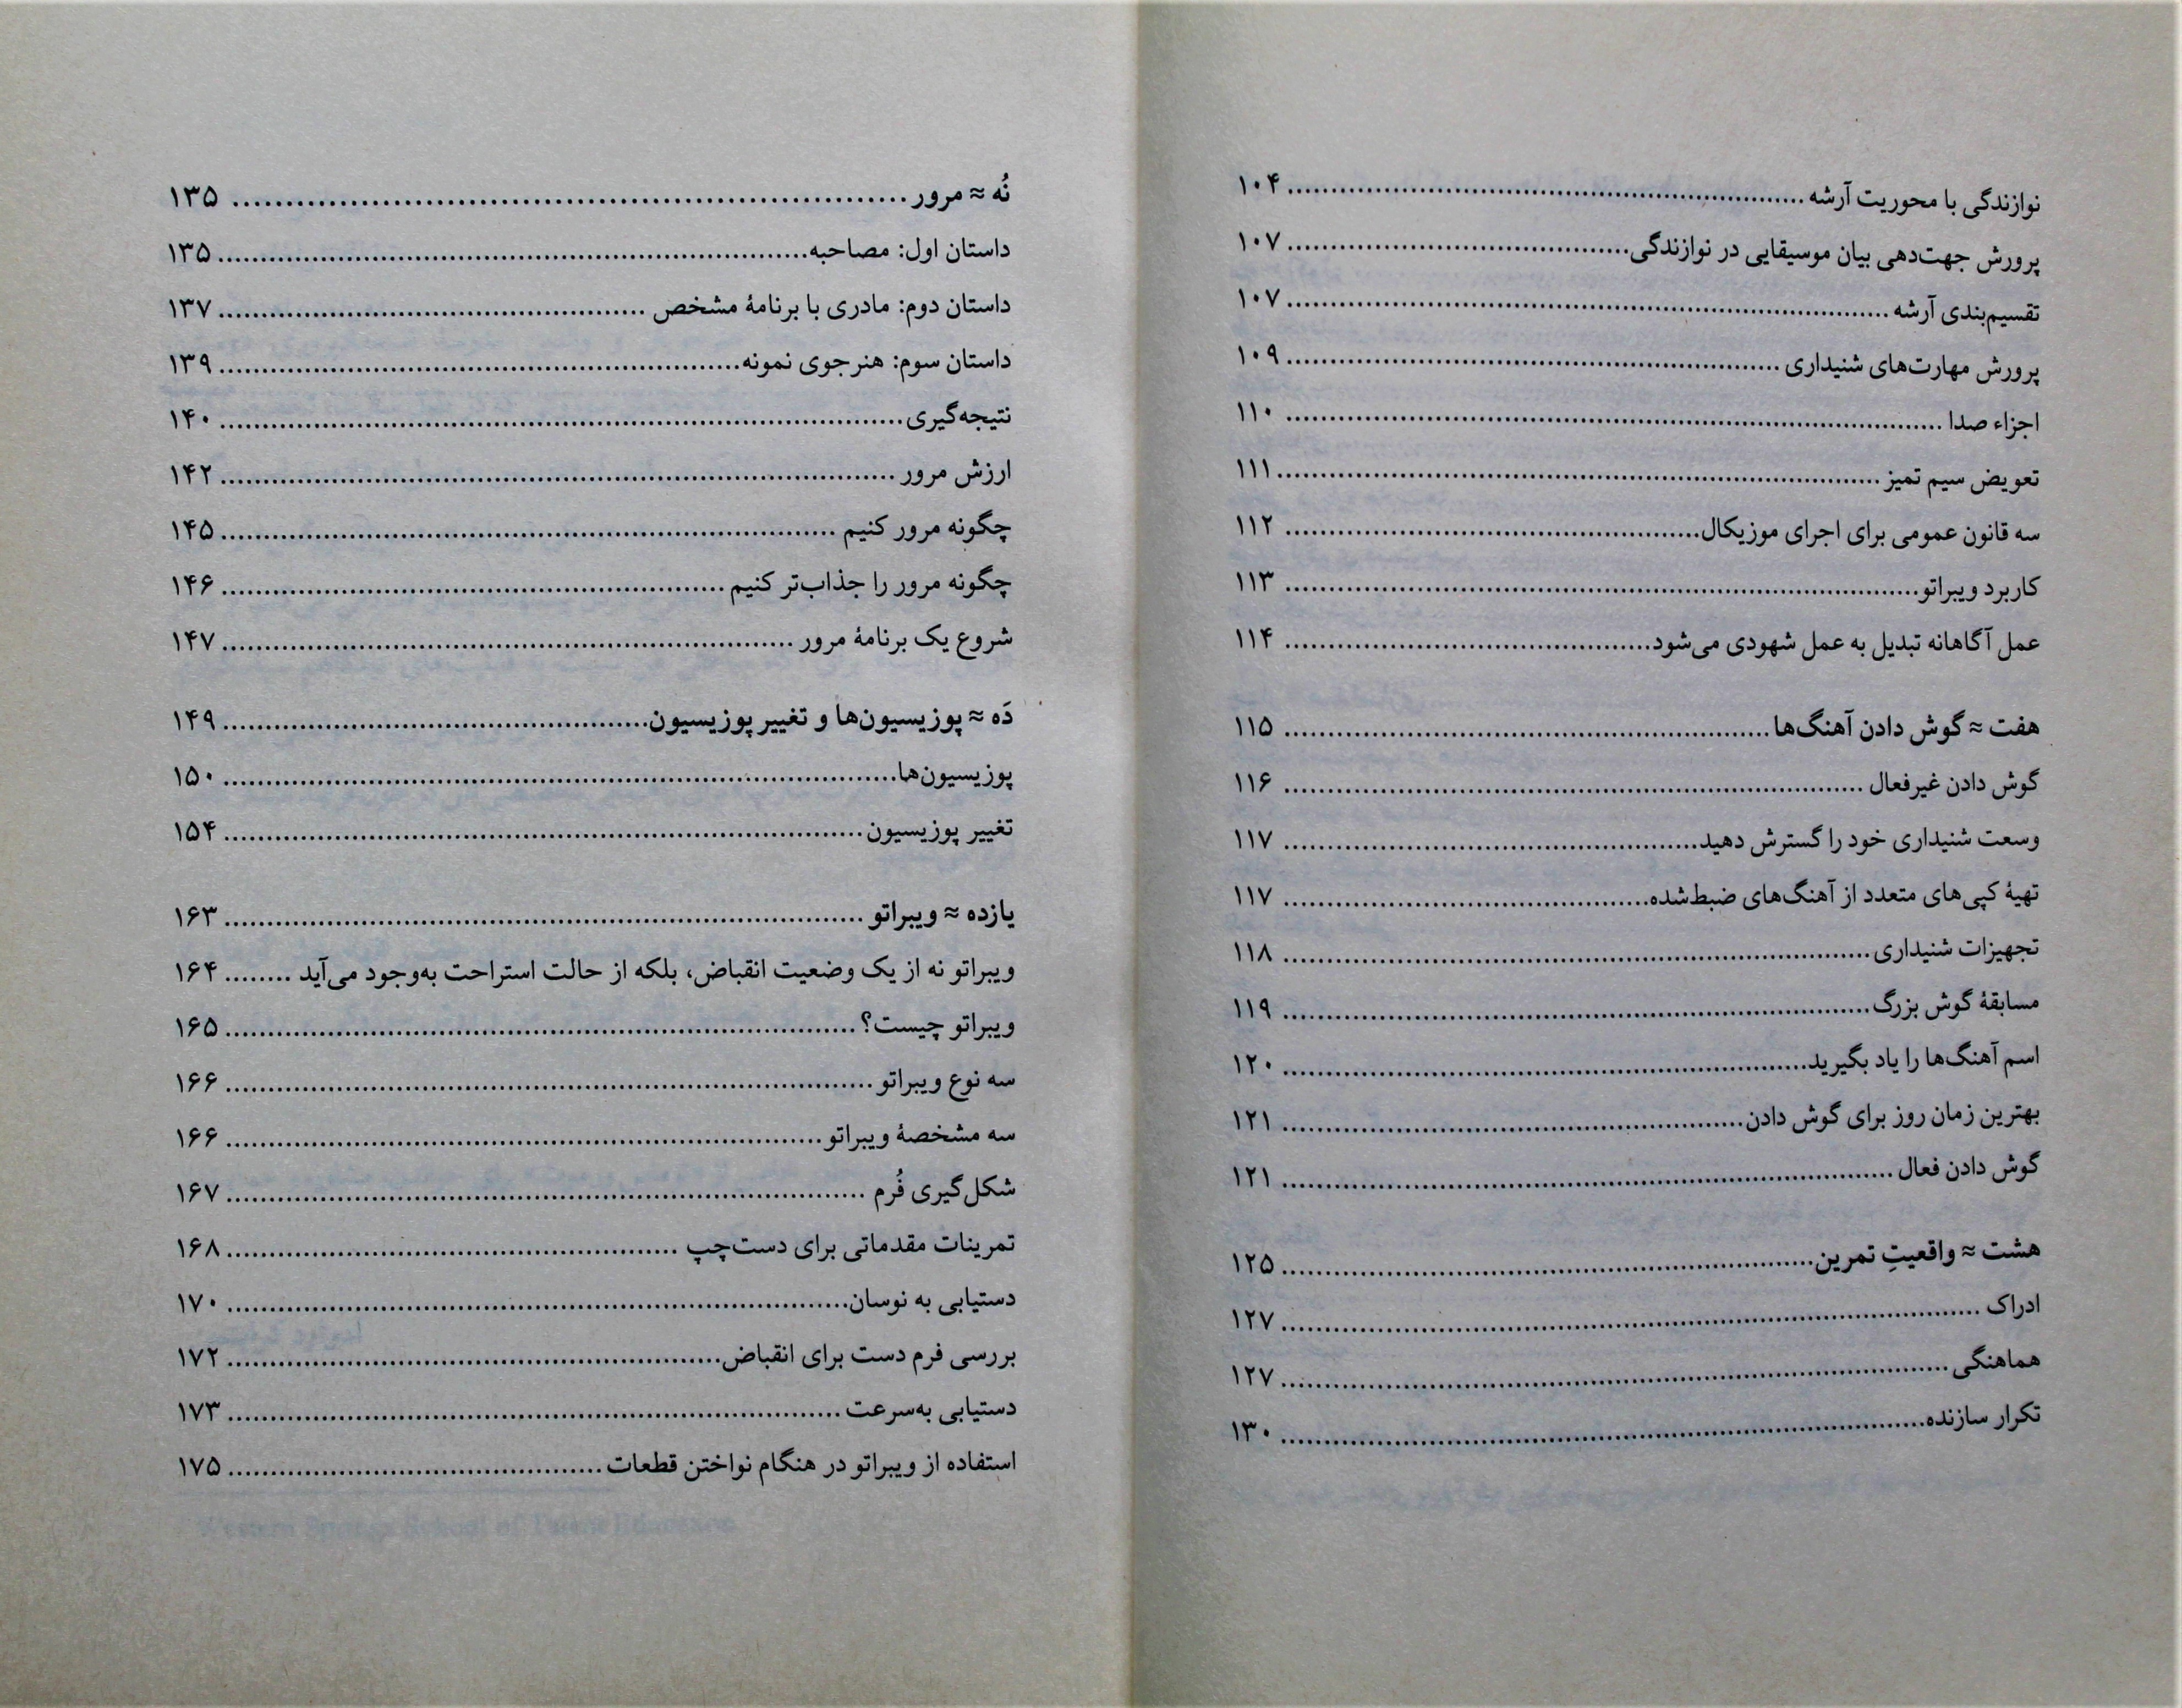 نوازندگی با محوریت آرشه ........ ۱۰۴
پرورش جهت‌دهی بیان موسیقایی در نوازندگی ........ ۱۰۷
تقسیم‌بندی آرشه ........ ۱۰۷
پرورش مهارت‌های شنیداری ........ ۱۰۹
اجزاء صدا ........ ۱۱۰
تعویض سیم تمیز ........ ۱۱۱
سه قانون عمومی برای اجرای موزیکال ........ ۱۱۲
کاربرد ویبراتو ........ ۱۱۳
عمل آگاهانه تبدیل به عمل شهودی می‌شود ........ ۱۱۴
هفت ≈ گوش دادن آهنگ‌ها ........ ۱۱۵
گوش دادن غیرفعال ........ ۱۱۶
وسعت شنیداری خود را گسترش دهید ........ ۱۱۷
تهیهٔ کپی‌های متعدد از آهنگ‌های ضبط‌شده ........ ۱۱۷
تجهیزات شنیداری ........ ۱۱۸
مسابقهٔ گوش بزرگ ........ ۱۱۹
اسم آهنگ‌ها را یاد بگیرید ........ ۱۲۰
بهترین زمان روز برای گوش دادن ........ ۱۲۱
گوش دادن فعال ........ ۱۲۱
هشت ≈ واقعیتِ تمرین ........ ۱۲۵
ادراک ........ ۱۲۷
هماهنگی ........ ۱۲۷
تکرار سازنده ........ ۱۳۰
نُه ≈ مرور ........ ۱۳۵
داستان اول: مصاحبه ........ ۱۳۵
داستان دوم: مادری با برنامهٔ مشخص ........ ۱۳۷
داستان سوم: هنرجوی نمونه ........ ۱۳۹
نتیجه‌گیری ........ ۱۴۰
ارزش مرور ........ ۱۴۲
چگونه مرور کنیم ........ ۱۴۵
چگونه مرور را جذاب‌تر کنیم ........ ۱۴۶
شروع یک برنامهٔ مرور ........ ۱۴۷
دَه ≈ پوزیسیون‌ها و تغییر پوزیسیون ........ ۱۴۹
پوزیسیون‌ها ........ ۱۵۰
تغییر پوزیسیون ........ ۱۵۴
یازده ≈ ویبراتو ........ ۱۶۳
ویبراتو نه از یک وضعیت انقباض، بلکه از حالت استراحت به‌وجود می‌آید ........ ۱۶۴
ویبراتو چیست؟ ........ ۱۶۵
سه نوع ویبراتو ........ ۱۶۶
سه مشخصهٔ ویبراتو ........ ۱۶۶
شکل‌گیری فُرم ........ ۱۶۷
تمرینات مقدماتی برای دست‌چپ ........ ۱۶۸
دستیابی به نوسان ........ ۱۷۰
بررسی فرم دست برای انقباض ........ ۱۷۲
دستیابی به‌سرعت ........ ۱۷۳
استفاده از ویبراتو در هنگام نواختن قطعات ........ ۱۷۵